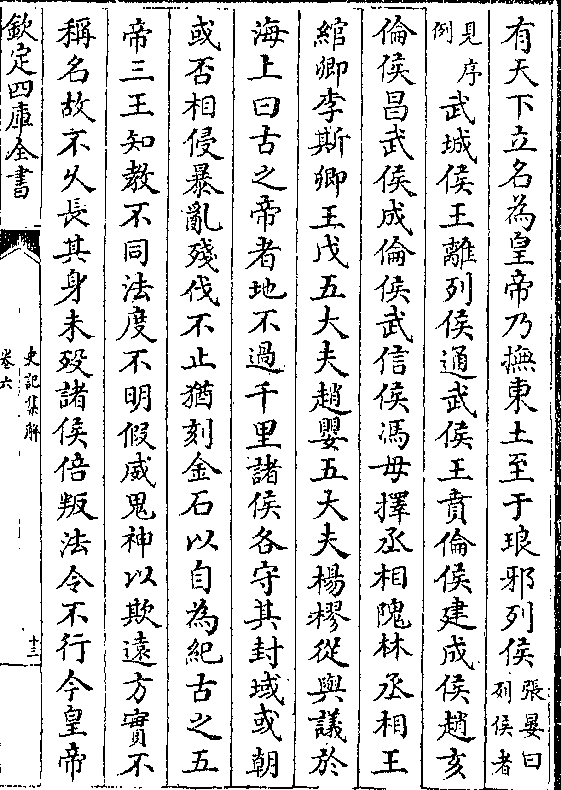 有天下立名為皇帝乃撫東土至于琅邪列侯張晏曰列侯者
見序例武城侯王離列侯通武侯王賁倫侯建成侯趙亥
倫侯昌武侯成倫侯武信侯馮毋擇丞相隗林丞相王
綰卿李斯卿王戊五大夫趙嬰五大夫楊樛從與議於
海上曰古之帝者地不過千里諸侯各守其封域或朝
或否相侵暴亂殘伐不止猶刻金石以自為紀古之五
帝三王知教不同法度不明假威鬼神以欺遠方實不
稱名故不久長其身未歿諸侯倍叛法令不行今皇帝
欽定四庫全書
史記集解
卷六
十三